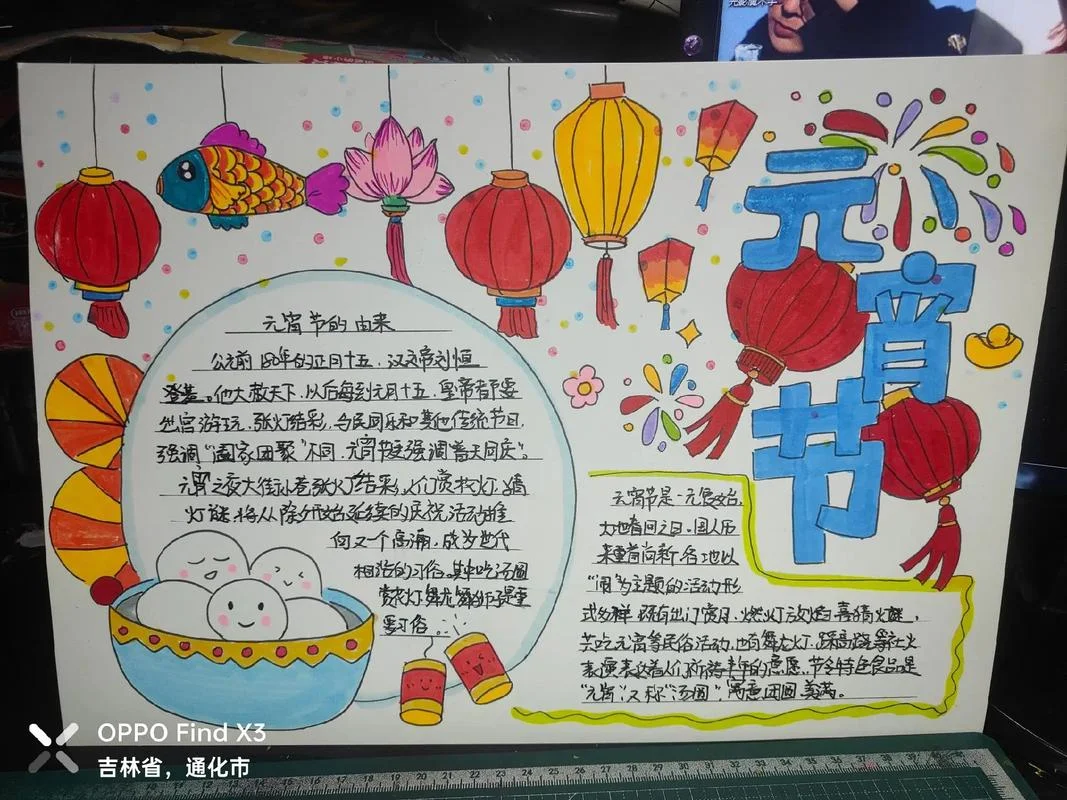 元宵节
元宵节的由来
公元前180年的正月十五，汉文帝刘恒
登基。他大赦天下，从后每到元月十五，皇帝都要
出宫游玩，张灯结彩，与民同乐和其他传统节日，
强调"国家团聚"不同，元宵节更强调"普天同庆"。
元宵之夜大街小巷张灯结彩，人们赏花灯，猜
灯谜，将从除夕开始延续的庆祝活动推
向又一个高潮，成为世代
相沿的习俗。其中吃汤圆
赏花灯舞龙舞狮子是重
要习俗。
元宵节是一元复始，
大地春回之日。国人历
来重着向新，各地以
"闹"为主题的活动形
式多样，既有出门赏月、燃灯放焰、喜猜灯谜，
共吃元宵等民俗活动，也有舞龙灯、踩高跷等社火
表演表达着人们祈祷丰年的意愿。节令特色食品是
"元宵"又称"汤圆"，寓意团圆美满。
OPPO Find X3
吉林省，通化市